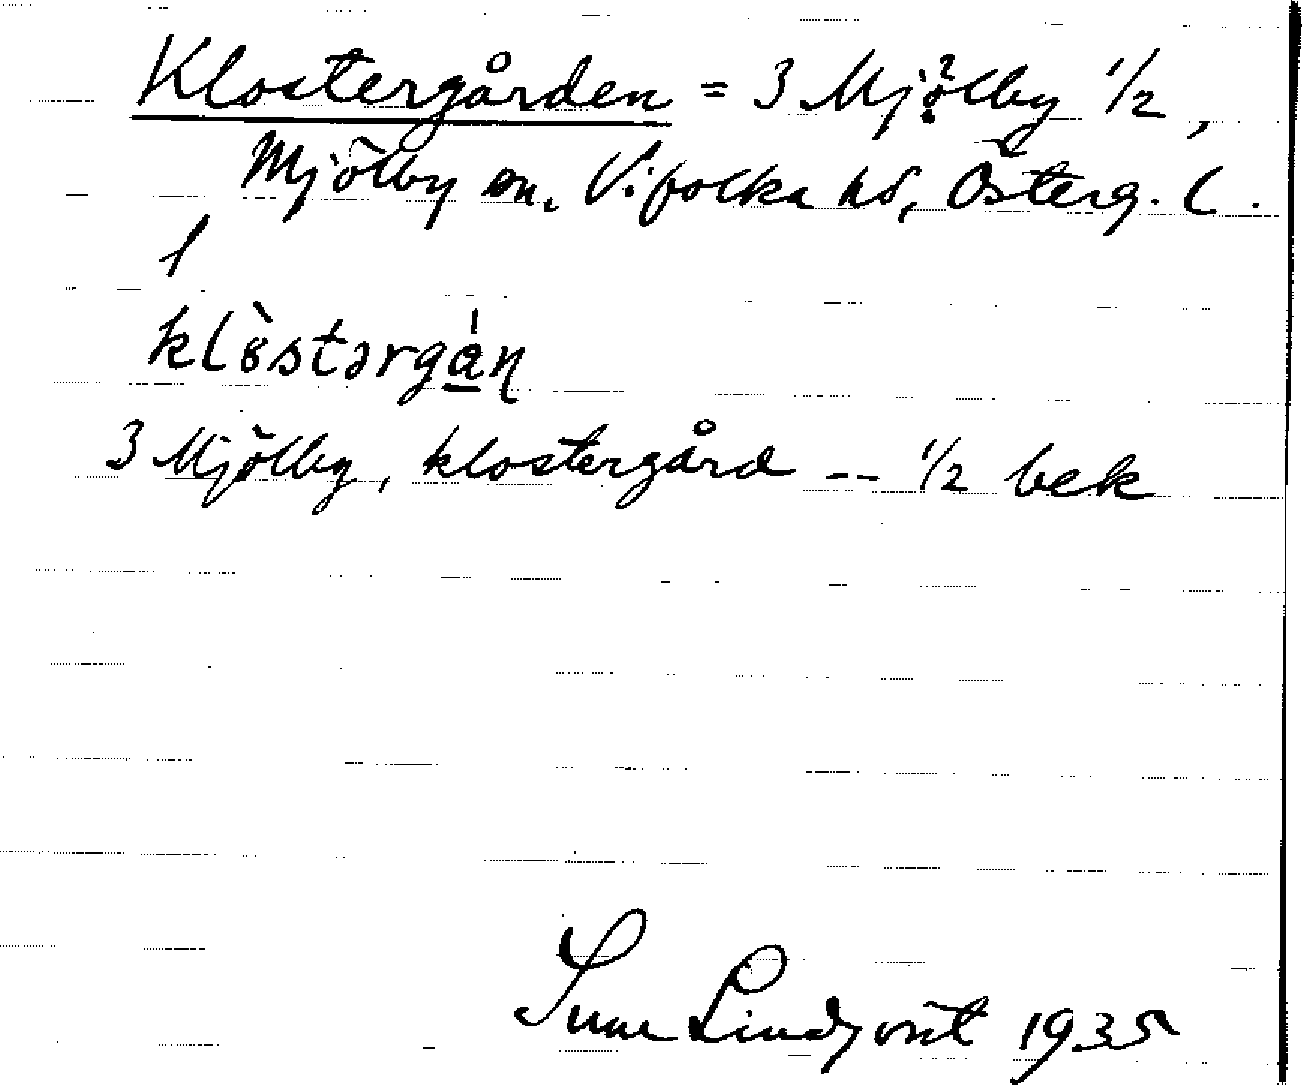 Klostergården = 3 Mjölby 1/2,
Mjölby sn. Vifolka hd, Österg. L.
/
klòstərgá̱ɳ
3 Mjölby, klostergård -- 1/2 bek
Sune Lindqvist 1935